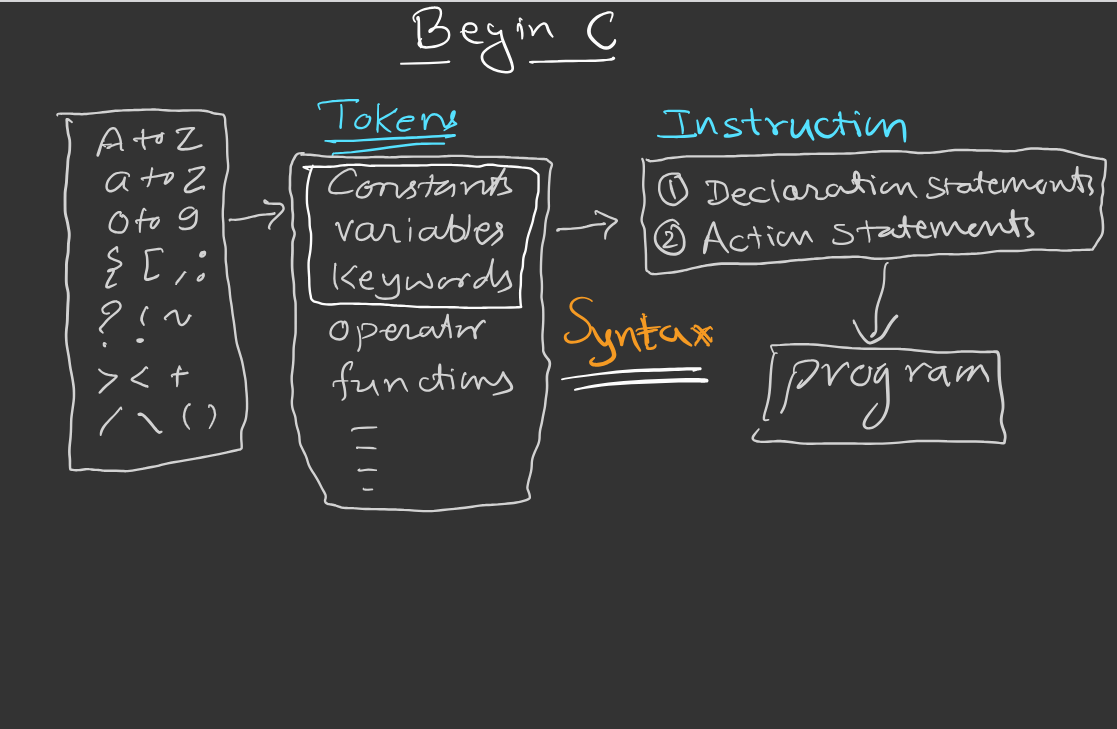 Begin C
A to Z
a to z
0 to 9
{ [ , ; :
? ! ~
> < +
/ \ ( )
Tokens
Constants
variables
Keywords
operator
functions
Syntax
Instruction
① Declaration statements
② Action statements
program